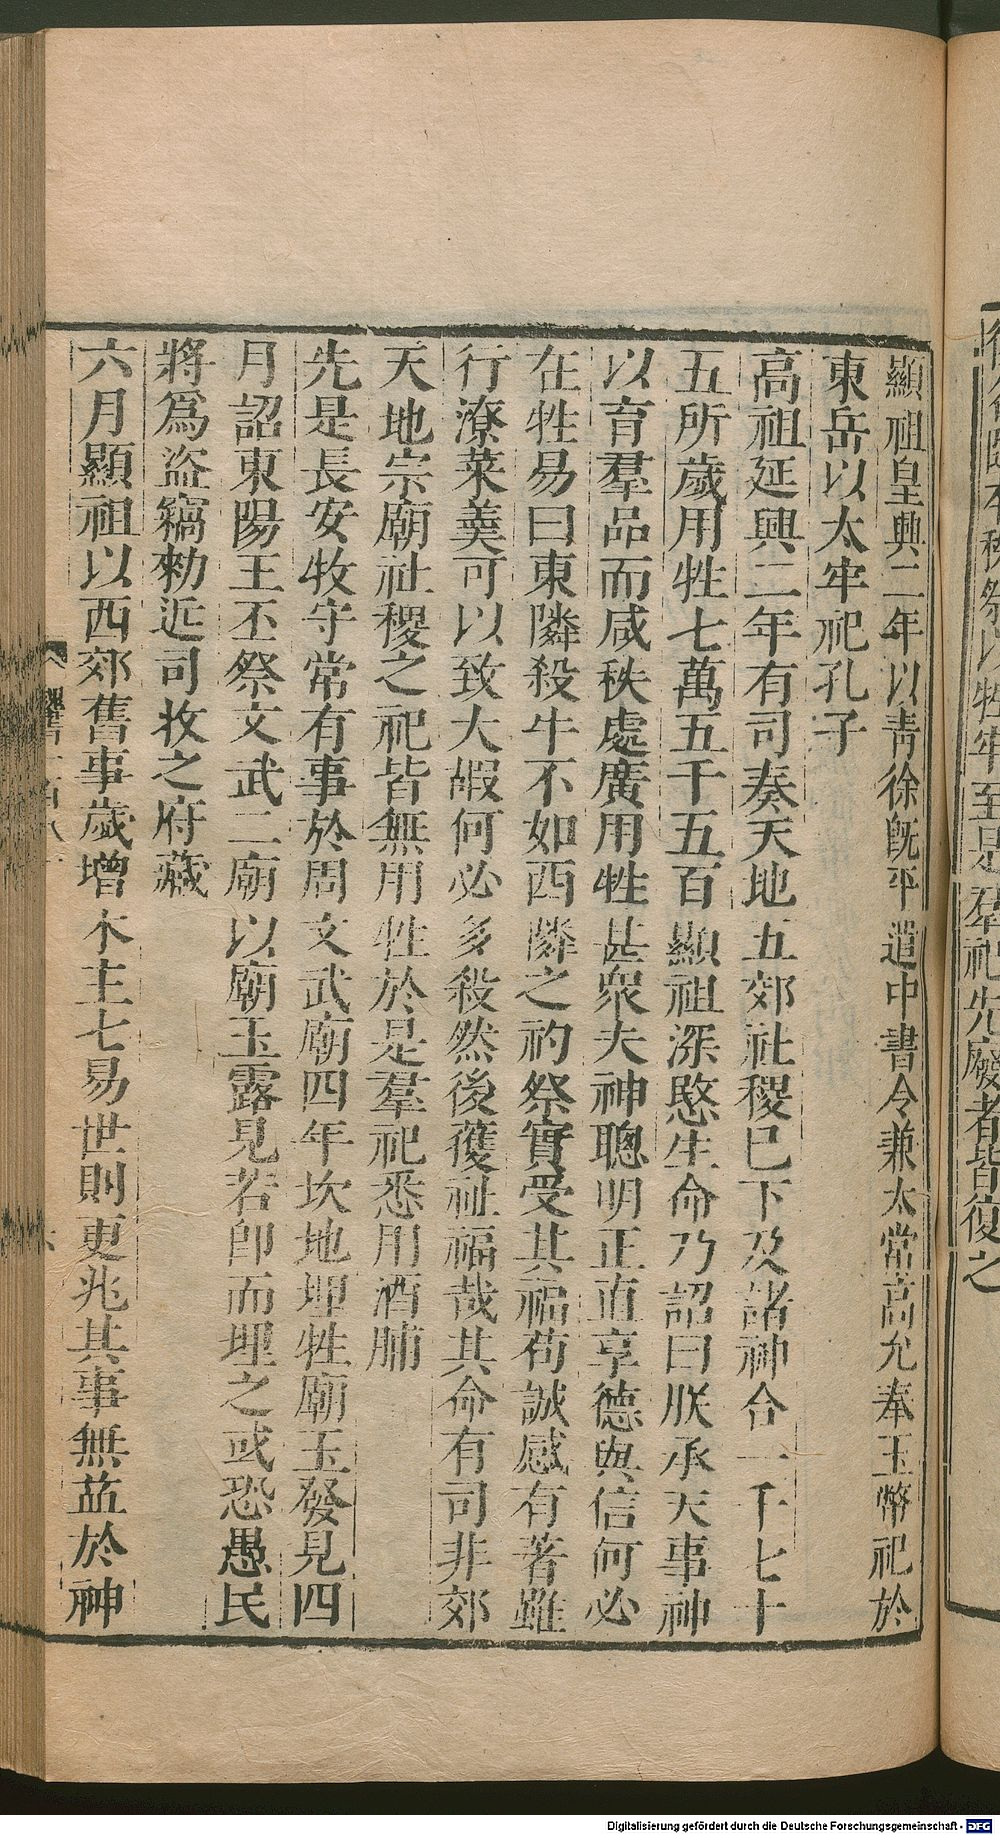 復之
顯祖皇興二年以靑徐旣平遣中書令兼太常高允奉玉幣祀於
東岳以太牢祀孔子
高祖延興二年有司奏天地五郊社稷已下及諸神合一千七十
五所歲用牲七萬五千五百顯祖深愍生命乃詔曰朕承天事神
以育羣品而咸秩處廣用牲甚衆夫神聰明正直享德與信何必
在牲易曰東隣殺牛不如西隣之礿祭實受其福苟誠感有著雖
行潦菜羹可以致大嘏何必多殺然後獲祉福哉其命有司非郊
天地宗廟社稷之祀皆無用牲於是羣祀悉用酒脯
先是長安牧守常有事於周文武廟四年坎地埋牲廟玉發見四
月詔東陽王丕祭文武二廟以廟玉露見若卽而埋之或恐愚民
將爲盜竊勑近司收之府藏
六月顯祖以西郊舊事歲增木主七易世則更兆其事無益於神
Digitalisierung gefördert durch die Deutsche Forschungsgemeinschaft - DFG